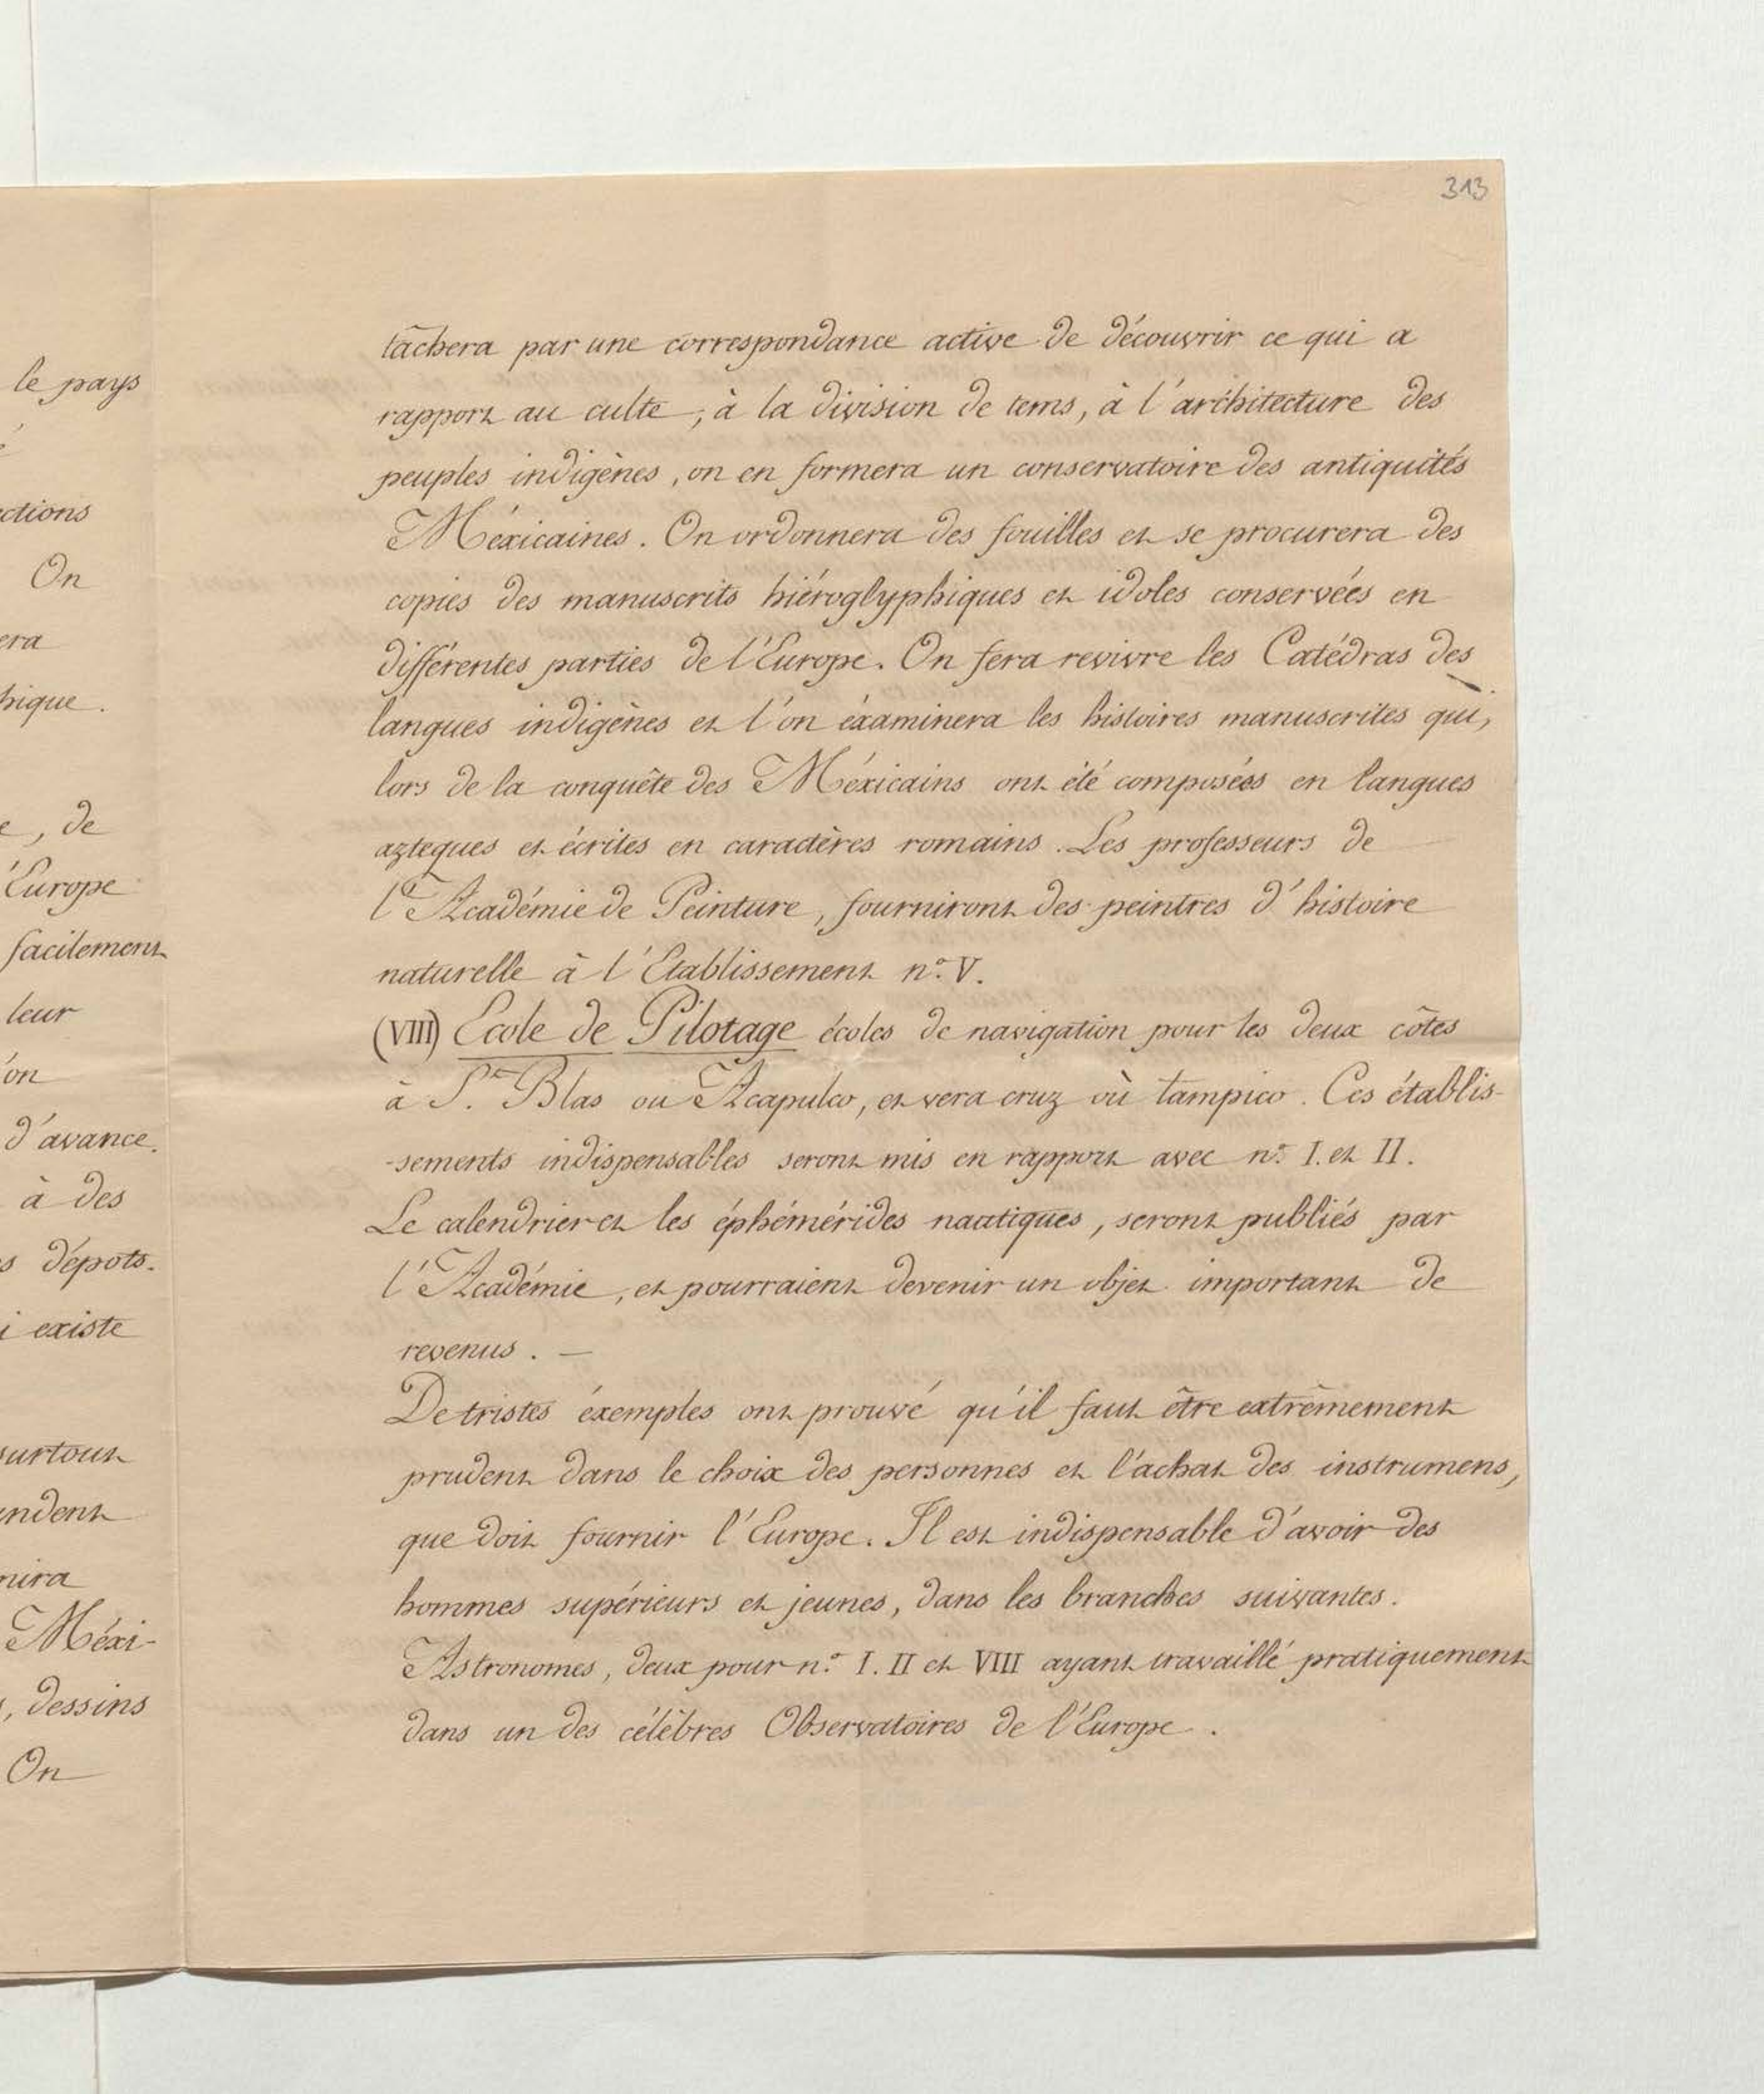 313
le pays
ctions
On
era
hique.
e, de
l'Europe
facilement
leur
l'on
d'avance.
à des
s dépots.
i existe
surtout
ndent
nira
Méxi-
, dessins
On
tâchera par une correspondance active de découvrir ce qui a
rapport au culte, à la division de tems, à l'architecture des
peuples indigènes, on en formera un conservatoire des antiquités
Méxicaines. On ordonnera des fouilles et se procurera des
copies des manuscrits hiéroglyphiques et idoles conservées en
différentes parties de l'Europe. On fera revivre les Catédras des
langues indigènes et l'on éxaminera les histoires manuscrites qui,
lors de la conquête des Méxicains ont été composées en langues
azteques et écrites en caractères romains. Les professeurs de
l'Académie de Peinture, fourniront des peintres d'histoire
naturelle à l'Etablissement n.o V.
(VIII) Ecole de Pilotage écoles de navigation pour les deux côtes
à S.n Blas ou Acapulco, et vera cruz où tampico. Ces établis-
-sements indispensables seront mis en rapport avec n.o I. et II.
Le calendrier et les éphémérides nautiques, seront publiés par
l'Académie, et pourraient devenir un objet important de
revenus. —
De tristes éxemples ont prouvé qu'il faut être extrêmement
prudent dans le choix des personnes et l'achat des instrumens,
que doit fournir l'Europe. Il est indispensable d'avoir des
hommes supérieurs et jeunes, dans les branches suivantes.
Astronomes, deux pour n.o I. II et VIII ayant travaillé pratiquement
dans un des célèbres Observatoires de l'Europe.